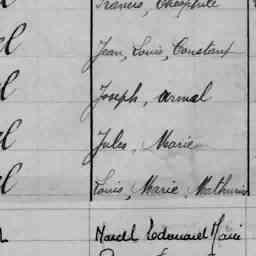 Francis, Théophile
Jean, Louis, Constant
Joseph, Armel
Jules, Marie
Louis, Marie, Mathurin
Marcel Edouard Marie